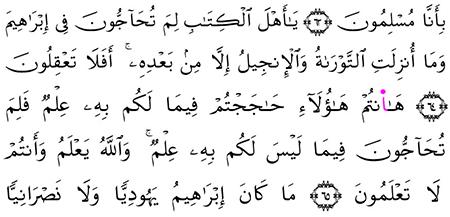 بِأَنَّا مُسْلِمُونَ ٦٤ يَٰٓأَهْلَ ٱلْكِتَٰبِ لِمَ تُحَآجُّونَ فِىٓ إِبْرَٰهِيمَ
وَمَآ أُنزِلَتِ ٱلتَّوْرَىٰةُ وَٱلْإِنجِيلُ إِلَّا مِنۢ بَعْدِهِۦٓ ۚ أَفَلَا تَعْقِلُونَ
٦٥ هَٰٓأَنتُمْ هَٰٓؤُلَآءِ حَٰجَجْتُمْ فِيمَا لَكُم بِهِۦ عِلْمٌ فَلِمَ
تُحَآجُّونَ فِيمَا لَيْسَ لَكُم بِهِۦ عِلْمٌ ۚ وَٱللَّهُ يَعْلَمُ وَأَنتُمْ
لَا تَعْلَمُونَ ٦٥ مَا كَانَ إِبْرَٰهِيمُ يَهُودِيًّا وَلَا نَصْرَانِيًّا